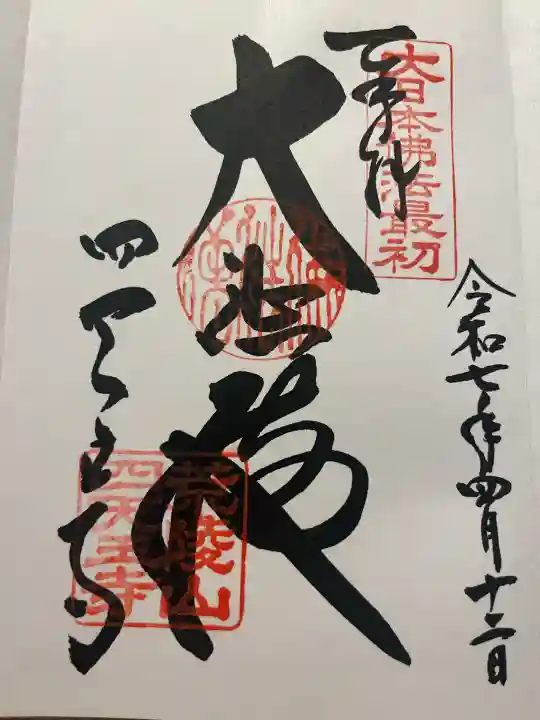 奉拝
大日本佛法最初
令和七年四月十二日
大悲殿
四天王寺
荒陵山
四天王寺